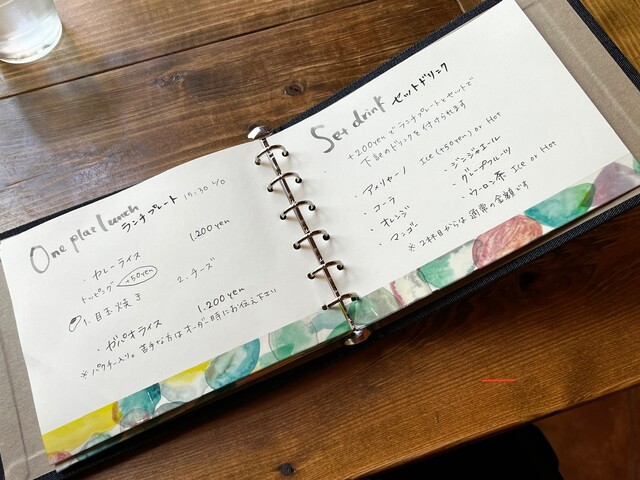 One plate lunch
ランチプレート 15:30 L/O
・カレーライス 1.200yen
トッピング +50yen
1.目玉焼き 2.チーズ
・ガパオライス 1.200yen
※パクチー入り。苦手な方はオーダー時にお伝え下さい
Set drink セットドリンク
・+200yenでランチプレートとセットで
下記のドリンクを付けられます
・アメリカーノ Ice (+50yen) or Hot
・コーラ ・ジンジャエール
・オレンジ ・グレープフルーツ
・マンゴー ・ウーロン茶 Ice or Hot
※2杯目からは通常の金額です